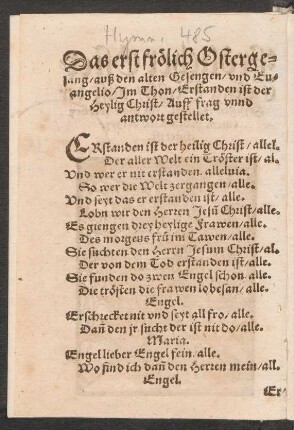 Hymn. 485
Das erst frölich Osterge-
sang/ auß den alten Gesengen/ vnd Eu-
angelio/ Im Thon/ Erstanden ist der
Heylig Christ/ Auff frag vnnd
antwort gestellet.
ERstanden ist der heilig Christ/ allel.
Der aller Welt ein Tröster ist/ al.
Vnd wer er nit erstanden. alleluia.
So wer die Welt zergangen/ alle.
Vnd seyt das er erstanden ist/ alle.
Lobn wir den Herren Jesū Christ/ alle.
Es giengen drey heylige Frawen/ alle.
Des morgens frü im Tawen/ alle.
Sie suchten den Herrn Jesum Christ/ al.
Der von dem Tod erstanden ist/ alle.
Sie funden do zwen Engel schon. alle.
Die trösten die frawen lobesan/ alle.
Engel.
Erschrecket nit vnd seyt all fro/ alle.
Dañ den jr sucht der ist nit do/ alle.
Maria.
Engel lieber Engel fein. alle.
Wo find ich dañ den Herren mein/ all.
Engel.
Er